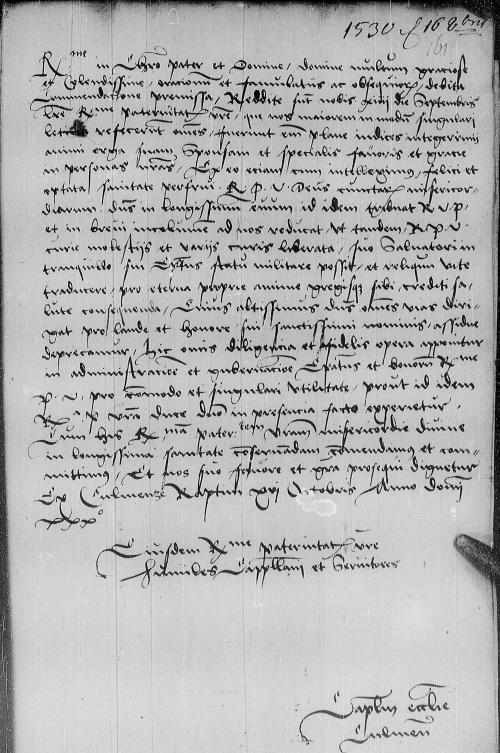 1530 16 8bris
161
R.me in Chro pater et Domine, domine multum graciose
et Colendissime, oracionum et famulatus ac obsequiorum debita
Commendacione premissa, Reddite sunt nobis die Septembris
lrae R.me paternitatis vre, que nos maiorem in modum singulari
leticia refecerunt omnes, fuerunt enim plane indices integerrimi
animi erga suam Sponsam et specialis favoris et gracie
in personas nras, Ex eo eciam cum intellexerimus, felici et
optata sanitate perfrui R P. V. Deus cunctarum misericor-
diarum, dans in longissimum evum id idem tribuat R V. P.
et in brevi incolumem ad nos reducat Ut tandem R P. V.
curie molestijs et varijs curis liberata, suo Salvatori in
tranquillo sui Epatus statu militare possit, et reliquum vite
traducere, pro eterna proprie anime gregisque sibi crediti sa-
lute consequenda, Cuius altissimus dns omnes vias diri-
gat pro laude et honore sui sanctissimi nominis, assidue
deprecamur, hic omnis diligencia et fidelis opera apponitur
in administracione et gubernacione Epatus et bonorum R.me
p. v. pro comodo et singulari utilitate, prout id idem
R.ma p. vra duce dno in presencia facto experietur,
Cum his R.mam pater.tem vram misericordie divine
in longissima sanitate conservandam comendamus et com-
mittimus, Et nos suo favore et gra prosequi dignetur
Ex Culmensee Raptim xvi Octobris Anno domini
xxx°
Eiusdem R.me paternitatis vre
humiles Capellani et Servitores
Caplm ecclie
Culmen